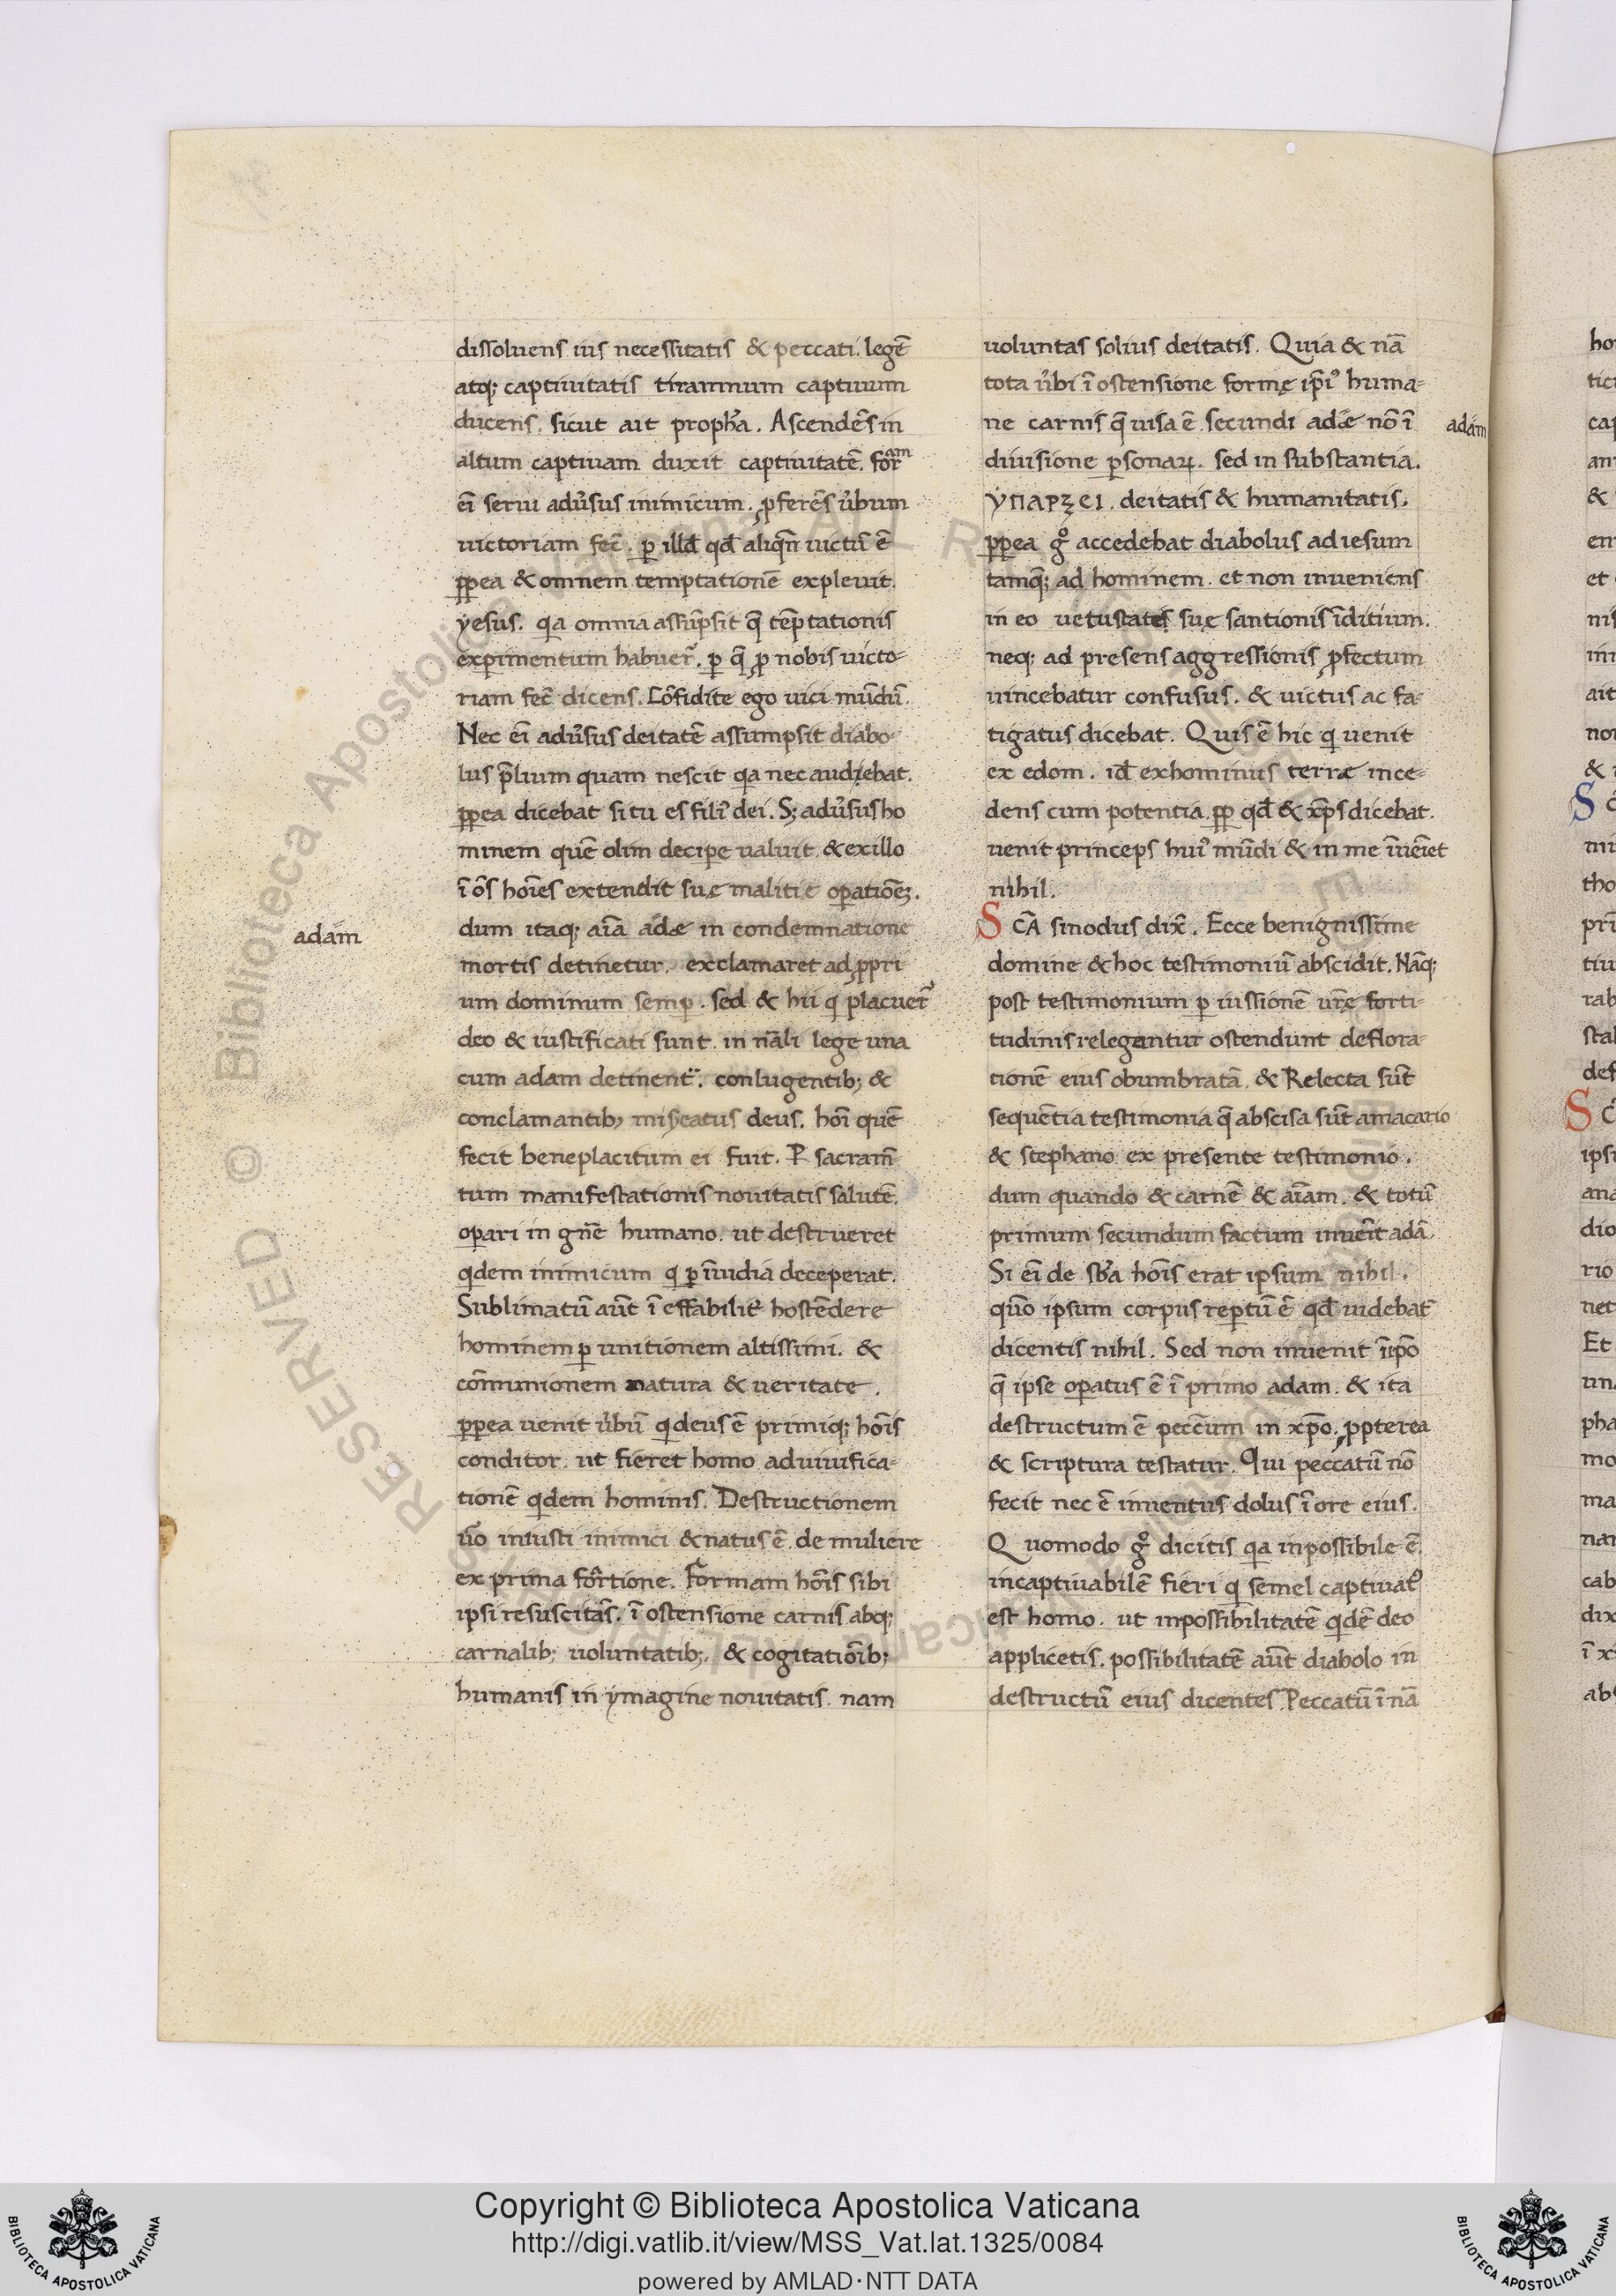 dissoluens ius necessitatis & peccati. legē
atq; captiuitatis tirannum captiuum
ducens. sicut ait propħa. Ascendēs in
altum captiuam duxit captiuitatē. for^am
eī serui adu̓sus inimicum. ꝓferēs u̓bum
uictoriam fec̄. ꝑ illđ qđ aliqn̄ uictū ē
ꝓꝑea & omnem temptationē expleuit.
yesus. qa omnia assūpsit q̄ tēptationis
experimentum habuer̄. ꝑ q̄ ꝓ nobis uicto-
riam fec̄ dicens. Cōfidite ego uici mūdū.
Nec eī adu̓sus deitatē assumpsit diabo-
lus p̄lium quam nescit qa nec audiebat.
ꝓꝑea dicebat si tu es fili᾽ dei. S; adu̓sus ho
minem quē olim decipe ualuit. & ex illo
ī ōs hoīes extendit suę malitię oꝑationēs.
adam
dum itaq; aīa adæ in condemnatione
mortis detinetur. exclamaret ad ꝓpri
um dominum semꝑ. sed & hii q placuer̄
deo & iustificati sunt. in nāli lege una
cum adam detinent᾽. conlugentib; &
conclamantib; miseatus deus. hoī quē
fecit beneplacitum ei fuit. P sacram̄
tum manifestationis nouitatis salutē.
oꝑari in gn̄e humano. ut destrueret
qdem inimicum q ꝑ īuidia deceperat.
Sublimatū aūt ī effabilit᾽ hostēdere
hominem ꝑ unitionem altissimi. &
cōmunionem natura & ueritate.
ꝓꝑea uenit u̓bū q deus ē primiq; hoīs
conditor. ut fieret homo ad uiuifica-
tionē qdem hominis. Destructionem
u̓o iniusti inimici & natus ē. de muliere
ex prima fōrtione. Formam hoīs sibi
ipsi resuscitās. ī ostensione carnis abq;
carnalib; uoluntatib;. & cogitatiōib;
humanis in ymagine nouitatis. nam
uoluntas solius deitatis. Quia & nā
tota u̓bi ī ostensione formę ip̄i᾽ huma-
ne carnis q̄ uisa ē. secundi adæ nō ī
adam
diuisione ꝑsonaꝝ. sed in substantia.
ẎΠΑΡξΕΙ. deitatis & humanitatis.
ꝓꝑea g° accedebat diabolus ad iesum
tamq; ad hominem. et non inueniens
in eo uetustates suę santionis īditium.
neq; ad presens aggressionis ꝓfectum
uincebatur confusus. & uictus ac fa-
tigatus dicebat. Quis ē hic q uenit
ex edom. iđ ex hominus terræ ince-
dens cum potentia. ꝓꝑ qđ & xp̄s dicebat.
uenit princeps hui᾽ mūdi & in me īueīet
nihil.
SCĀ sinodus dix̄. Ecce benignissime
domine & hoc testimoniū abscidit. Nāq;
post testimonium ꝑ iussionē ur̄ę forti-
tudinis relegantur ostendunt deflora-
tionē eius obumbratā. & Relecta sūt
sequētia testimonia q̄ abscisa sūt amacario
& stephano ex presente testimonio.
dum quando & carnē & aīam. & totū
primum secundum factum inuēit adā.
Si eī de sƀa hoīs erat ipsum nihil.
quō ipsum corpus reptū ē qđ uidebat᾽
dicentis nihil. Sed non inuenit īip̄o
q̄ ipse oꝑatus ē ī primo adam. & ita
destructum ē peccm̄ in xp̄o. ꝓpterea
& scriptura testatur. Qui peccatū nō
fecit nec ē inuentus dolus ī ore eius.
Quomodo g° dicitis qa inpossibile ē.
incaptiuabilē fieri q semel captiuat᾽
est homo. ut inpossibilitatē qdē deo
applicetis. possibilitatē aūt diabolo in
destructū eius dicentes. Peccatū ī nā
Copyright © Biblioteca Apostolica Vaticana
http://digi.vatlib.it/view/MSS_Vat.lat.1325/0084
powered by AMLAD·NTT DATA